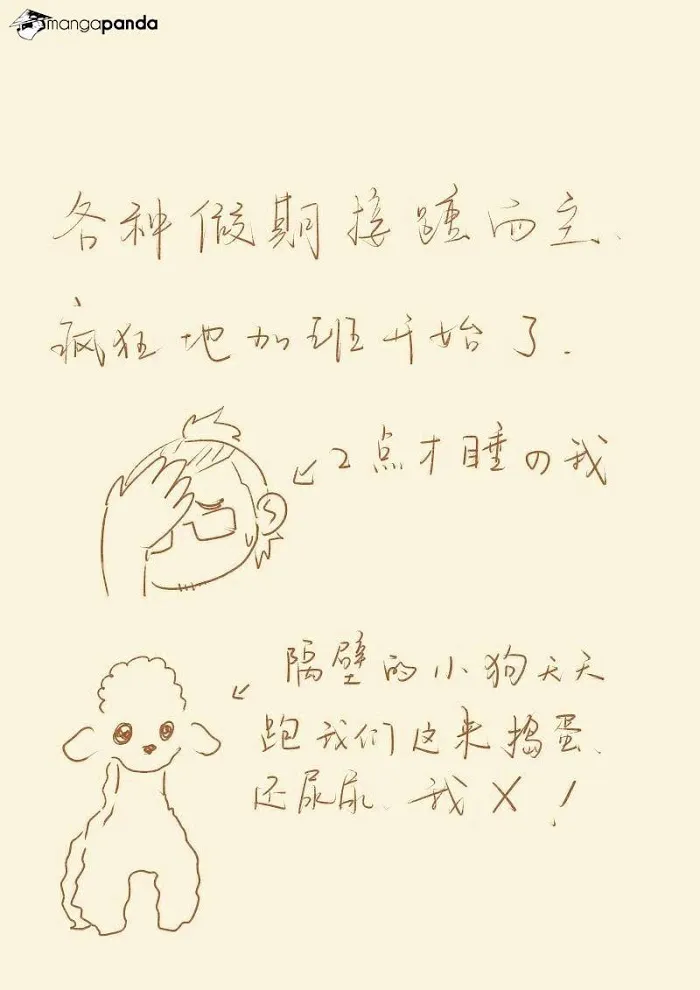 mangapanda
各种假期接踵而至、
疯狂地加班开始了.
2点才睡の我
隔壁的小狗天天
跑我们这来捣蛋、
还尿尿、我X！